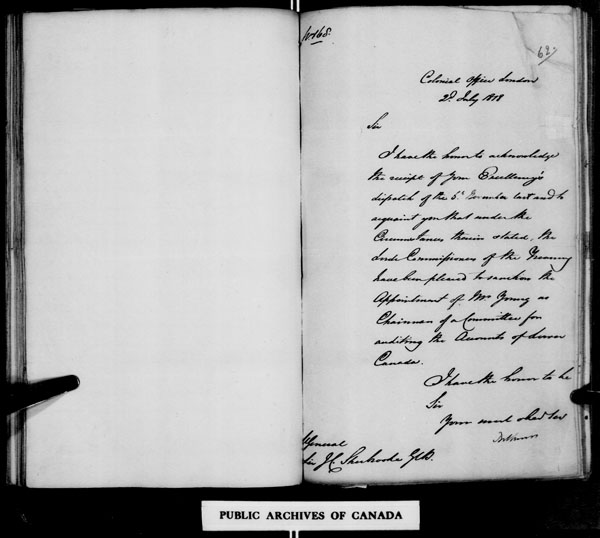 No 168.
62.
Colonial Office London
2d. July 1818
Sir
I have the honor to acknowledge
the receipt of Your Excellency's
dispatch of the 5th November last and to
acquaint you that under the
Circumstances therein stated, the
Lords Commissioners of the Treasury
have been pleased to sanction the
Appointment of Mr. Young as
Chairman of a Committee for
auditing the Accounts of Lower
Canada.
I have the honor to be
Sir
Your most obedient
General
Sir J C Sherbrooke GCB.
PUBLIC ARCHIVES OF CANADA